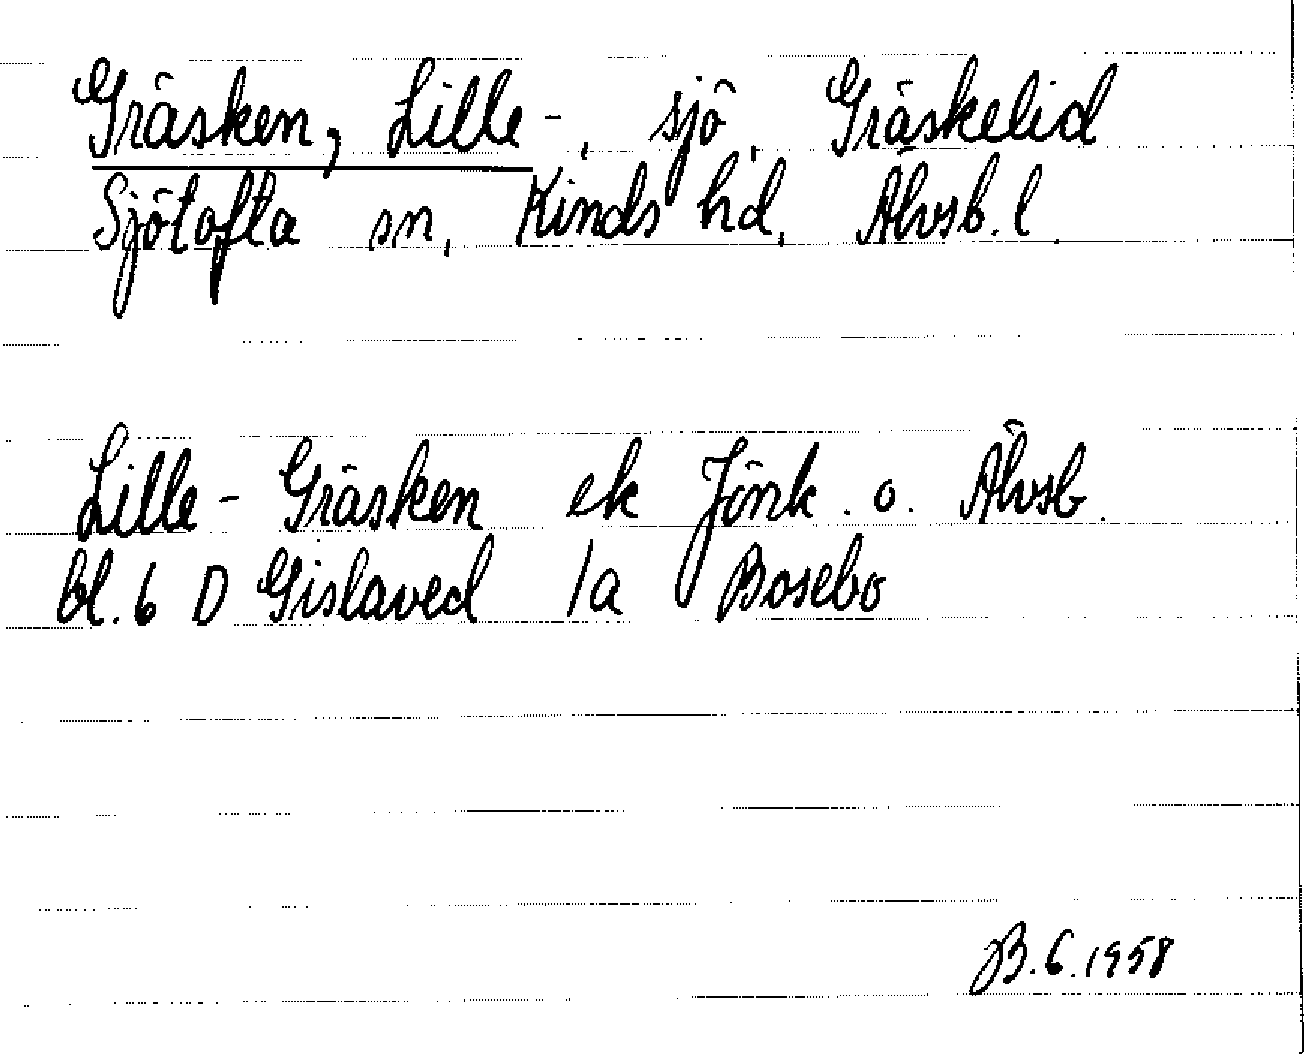 Gräsken, Lille-, sjö, Gräskelid
Sjötofta sn, Kinds hd, Älvsb. l.
Lille-Gräsken ek Jönk. o. Älvsb.
bl. 6 D Gislaved 1a Bosebo
B.G. 1958